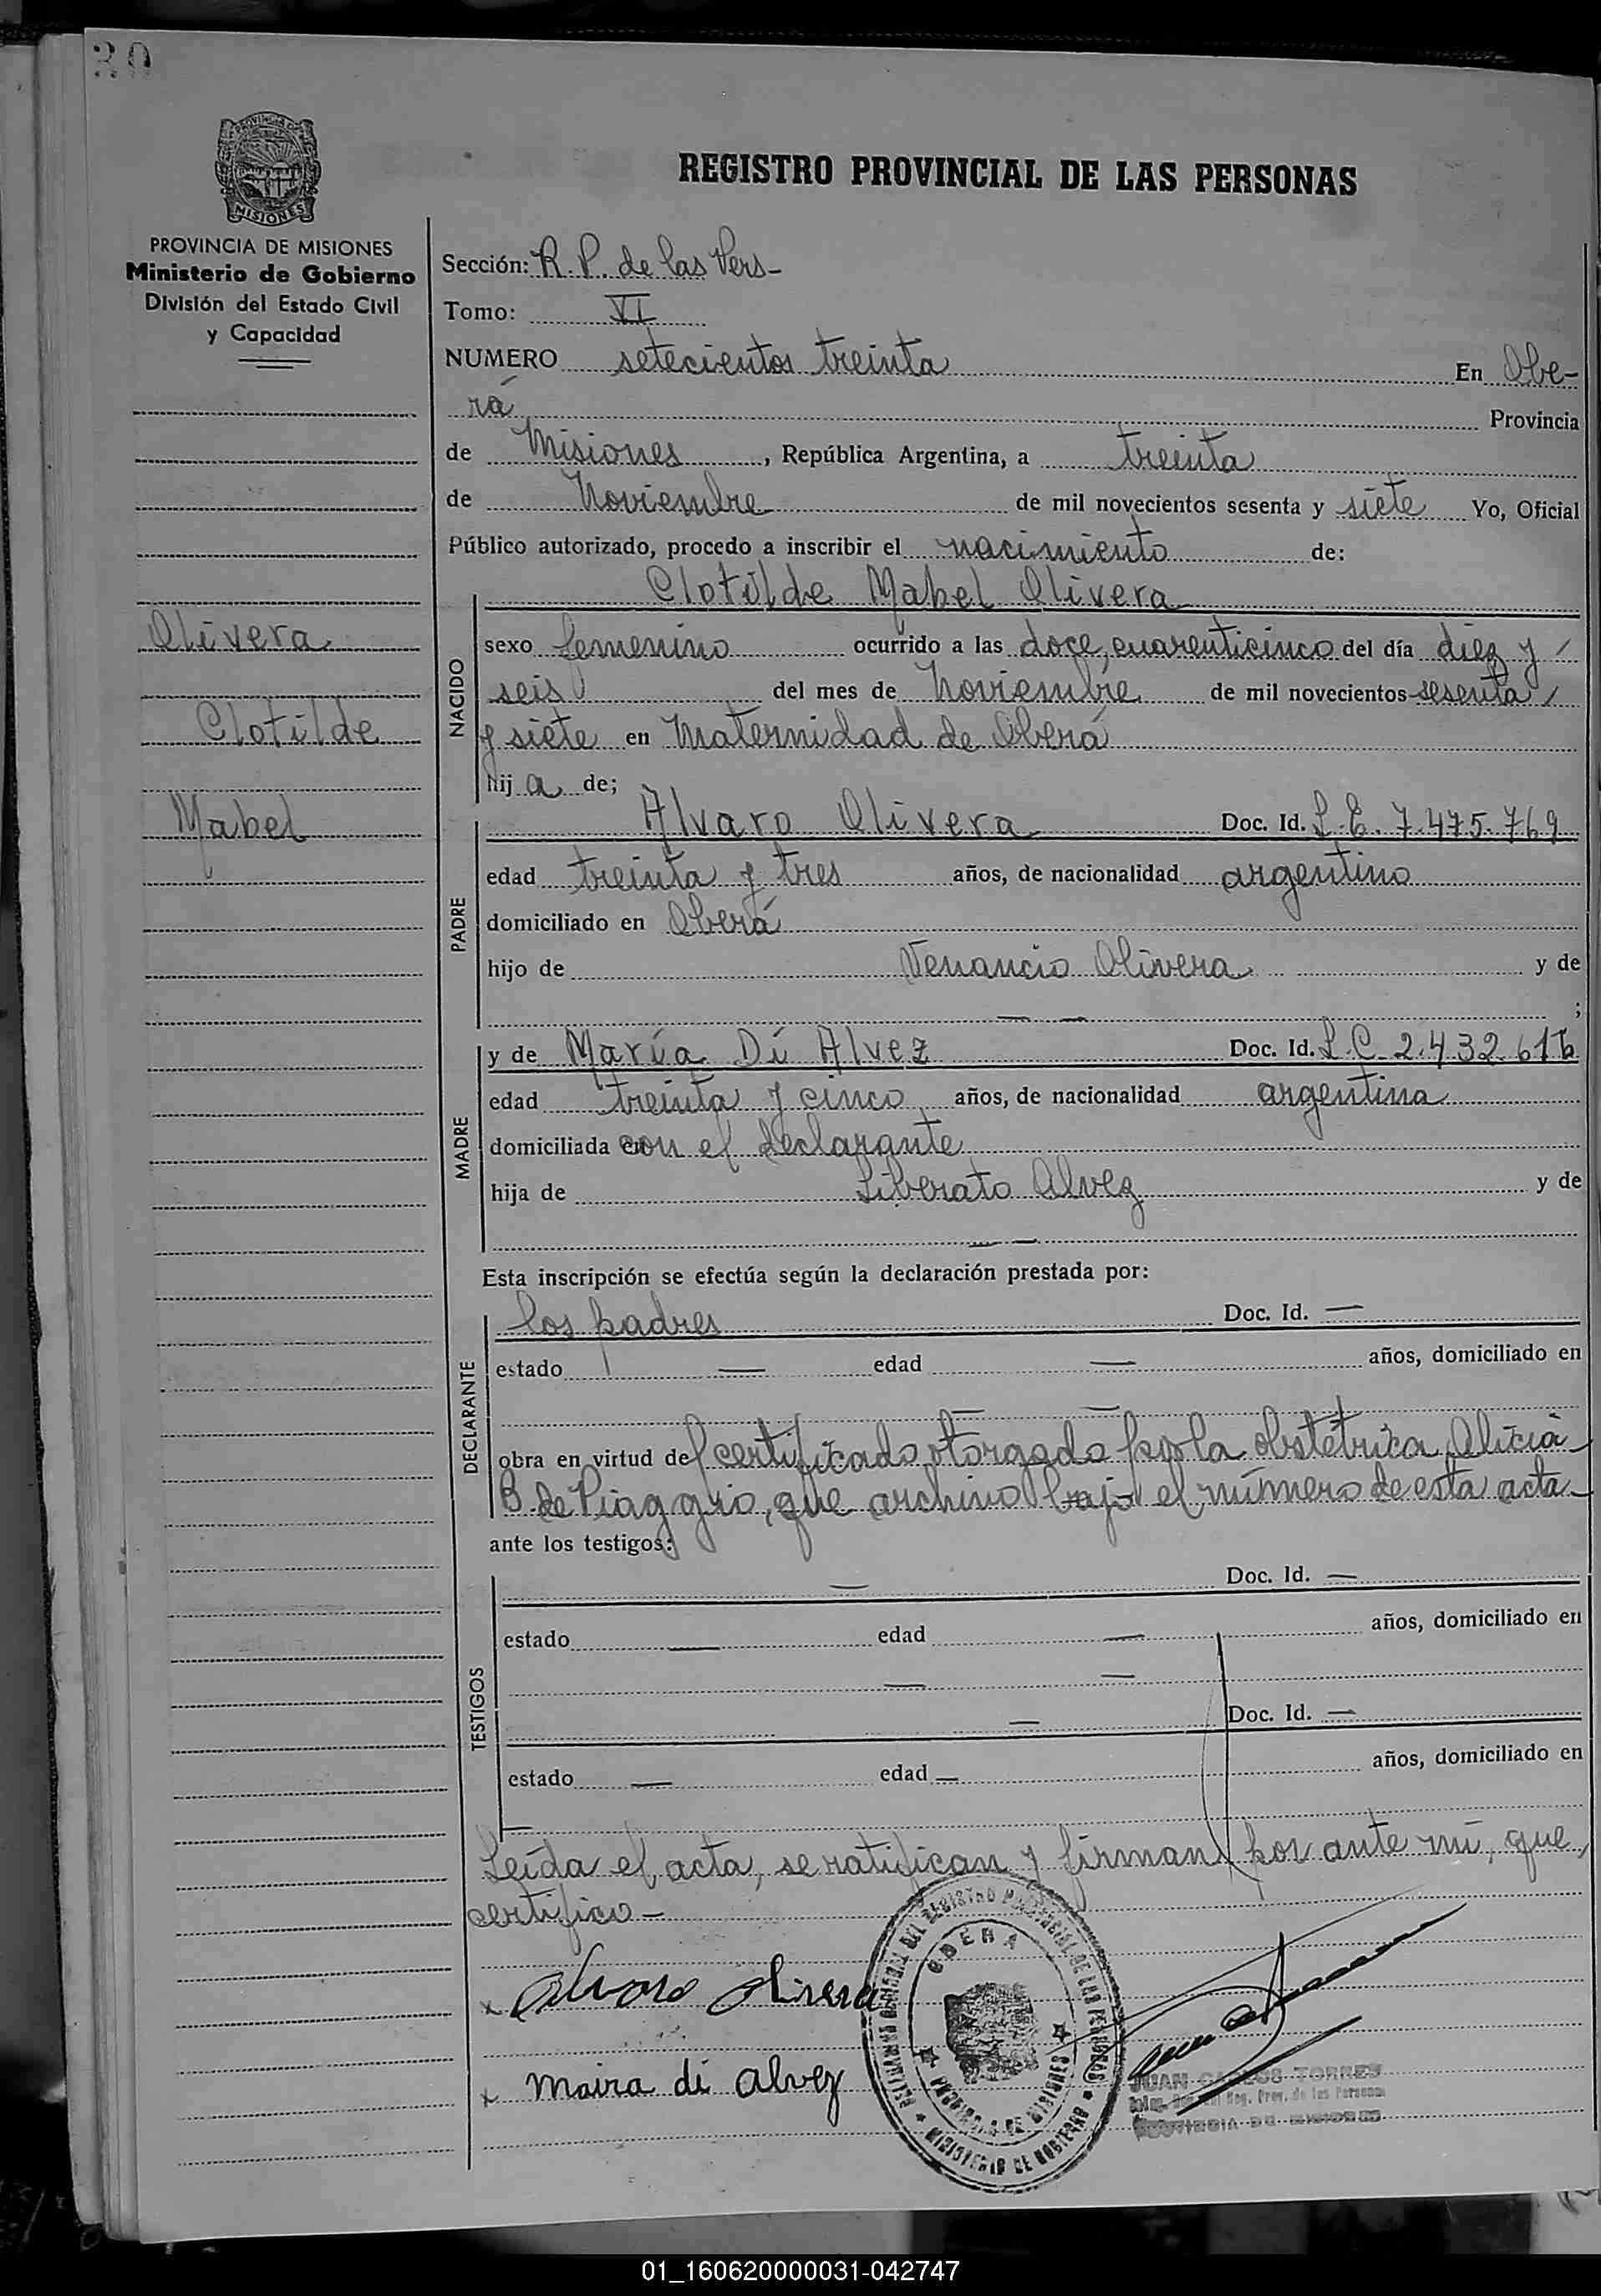 30
REGISTRO PROVINCIAL DE LAS PERSONAS
PROVINCIA DE
MISIONES
PROVINCIA DE MISIONES
Ministerio de Gobierno
División del Estado Civil
y Capacidad
Olivera
Clotilde
Mabel
Sección: R. P. de las Pers-
Tomo: VI
NUMERO setecientos treinta En Obe-
rá Provincia
de Misiones, República Argentina, a treinta
de Noviembre de mil novecientos sesenta y siete Yo, Oficial
Público autorizado, procedo a inscribir el nacimiento de:
NACIDO
Clotilde Mabel Olivera
sexo femenino ocurrido a las doce, cuarenticinco del día diez y
seis del mes de Noviembre de mil novecientos sesenta
y siete en Maternidad de Oberá
hij a de;
PADRE
Alvaro Olivera Doc. Id. L.E. 7.475.769
edad treinta y tres años, de nacionalidad argentino
domiciliado en Oberá
hijo de Venancio Olivera y de
— — ;
MADRE
y de María Di Alvez Doc. Id. L.C. 2.432.616
edad treinta y cinco años, de nacionalidad argentina
domiciliada con el declarante
hija de Liberato Alvez y de
— —
Esta inscripción se efectúa según la declaración prestada por:
DECLARANTE
los padres Doc. Id. —
estado — edad — años, domiciliado en
— —
obra en virtud del certificado otorgado por la obstetrica Alicia
B. de Piaggio, que archivo bajo el número de esta acta-
ante los testigos:
TESTIGOS
— Doc. Id. —
estado — edad — años, domiciliado en
— —
— Doc. Id. —
estado — edad — años, domiciliado en
—
Leída el acta, se ratifican y firman por ante mí, que,
certifico-
x Alvaro Olivera
x Maira di Alvez
OBERA
PROVINCIA DE MISIONES
MINISTERIO DE GOBIERNO
JUAN CARLOS TORRES
Reg. Prov. de las Personas
PROVINCIA DE MISIONES
01_160620000031-042747